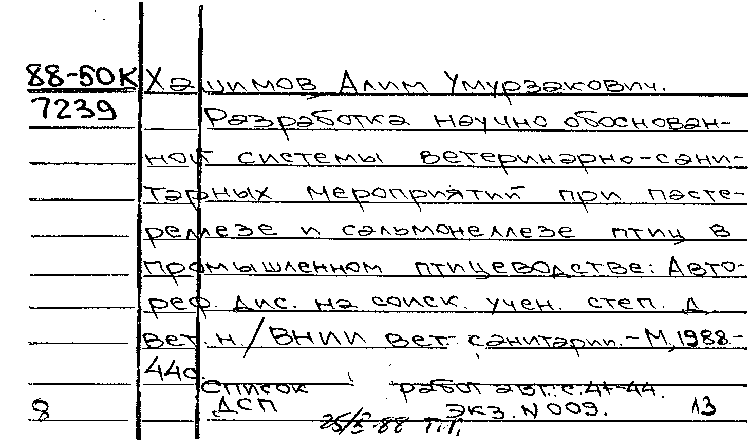 88-50К Хашимов Алим Умурзакович.
7239 Разработка научно обоснован-
ной системы ветеринарно-сани-
тарных мероприятий при пасте-
реллезе и сальмонеллезе птиц в
промышленном птицеводстве: Авто-
реф. дис. на соиск. учен. степ. д
вет. н./ВНИИ вет санитарии.-М, 1988-
44с
Список работ авт: с. 41-44.
8 ДСП экз. N 009. 13
88